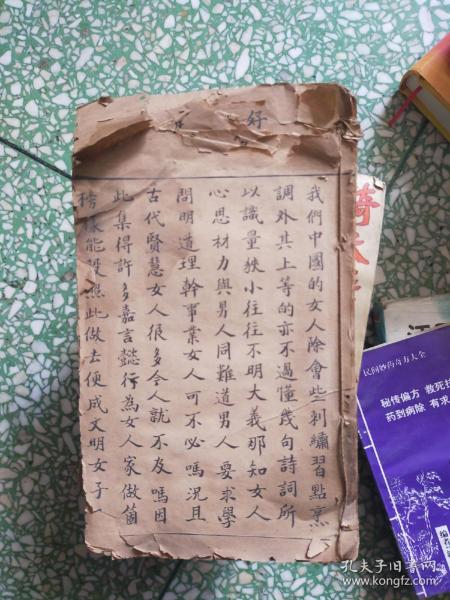 好
我們中國的女人除會些刺繡習點烹
調外其上等的亦不過懂幾句詩詞所
以識量狹小往往不明大義那知女人
心思材力與男人同難道男人要求學
問明道理幹事業女人可不必嗎況且
古代賢慧女人很多令人就不及嗎因
此集得許多嘉言懿行為女人家做箇
榜樣能學照此做去便成文明女子一
民间妙药奇方大全
秘传偏方 救死扶
药到病除 有求
编者
孔夫子旧书网
www.kongfz.com